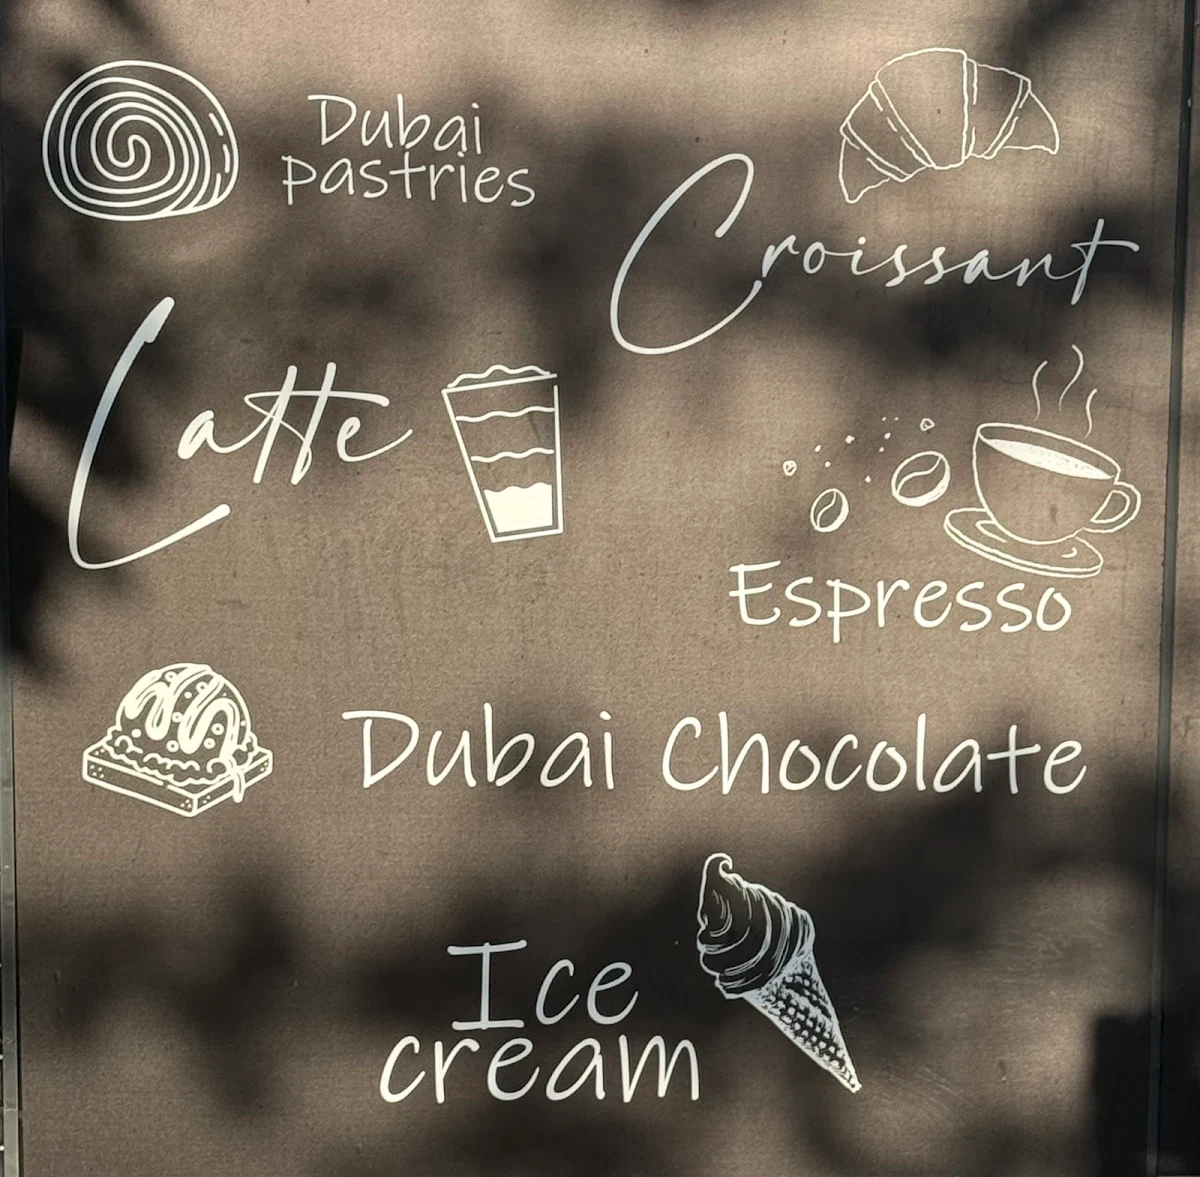 Dubai
pastries
Croissant
Latte
Espresso
Dubai Chocolate
Ice
cream